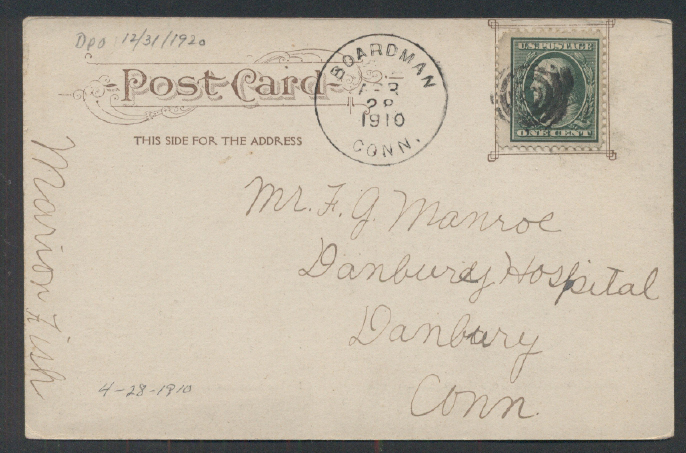 Dpo 12/31/1920
Post Card
THIS SIDE FOR THE ADDRESS
BOARDMAN
APR
28
1910
CONN.
U.S. POSTAGE
ONE CENT
Mr. F. G. Manroe
Danbury Hospital
Danbury
Conn.
Marion Fish
4-28-1910